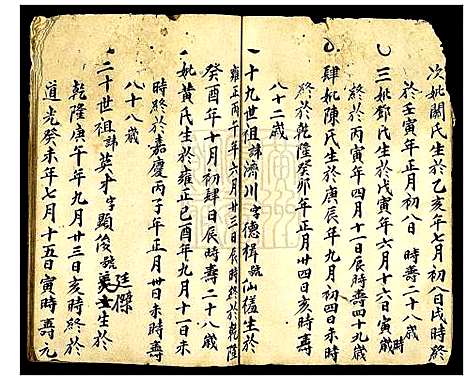 次妣關氏生於乙亥年七月初八日戌時終
於壬寅年正月初八日 時壽二十八歲
三妣鄧氏生於戊寅年六月十六寅時
終於丙寅年四月十一日辰時壽四十九歲
肆妣陳氏生於庚辰年九月初四日未時
終於乾隆癸卯年正月廿四日亥時壽
八十二歲
一十九世祖諱濟川字德楫號仙槎生於
雍正丙午年六月廿三日辰時終於乾隆
癸酉年十月初肆日辰時壽二十八歲
妣黃氏生於雍正己酉年九月十一日未
時終於嘉慶丙子年正月廿日未時壽
八十八歲
二十世祖諱英才字顯俊號廷傑生於
乾隆庚午年九月廿三日亥時終於
道光癸未年七月十五日寅時壽元